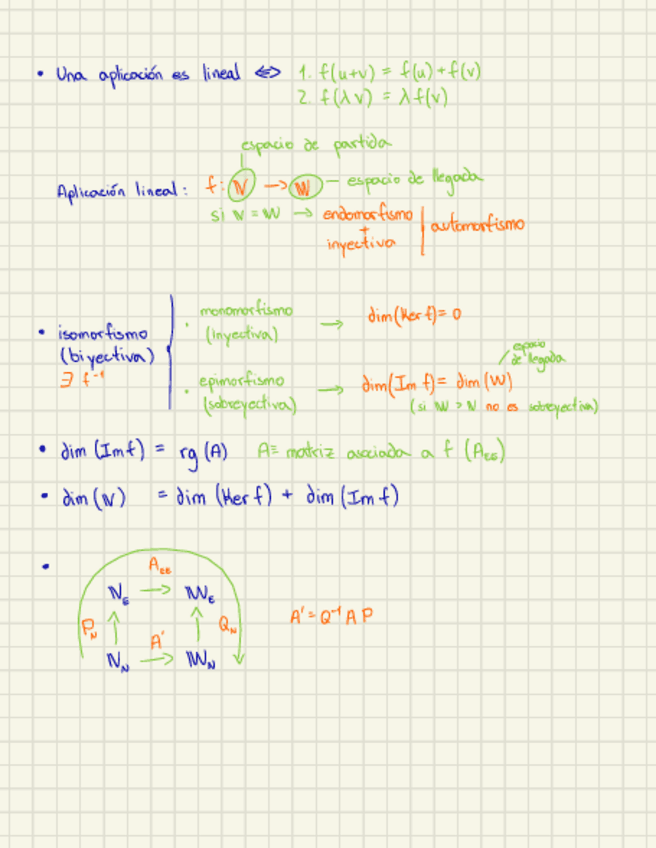 • Una aplicación es lineal <=> 1. f(u+v) = f(u) + f(v)
2. f(λv) = λ f(v)
espacio de partida
Aplicación lineal: f: V → W — espacio de llegada
si V = W → endomorfismo + inyectiva | automorfismo
• isomorfismo (biyectiva) ∃ f⁻¹
· monomorfismo (inyectiva) → dim(Ker f) = 0
espacio de llegada
· epimorfismo (sobreyectiva) → dim(Im f) = dim(W)
(si W > V no es sobreyectiva)
• dim (Im f) = rg (A) A ≡ matriz asociada a f (A_EE)
• dim (V) = dim (Ker f) + dim (Im f)
•
A_EE
V_E → W_E
P_N ↑ ↑ Q_N A' = Q⁻¹ A P
A'
V_N → W_N